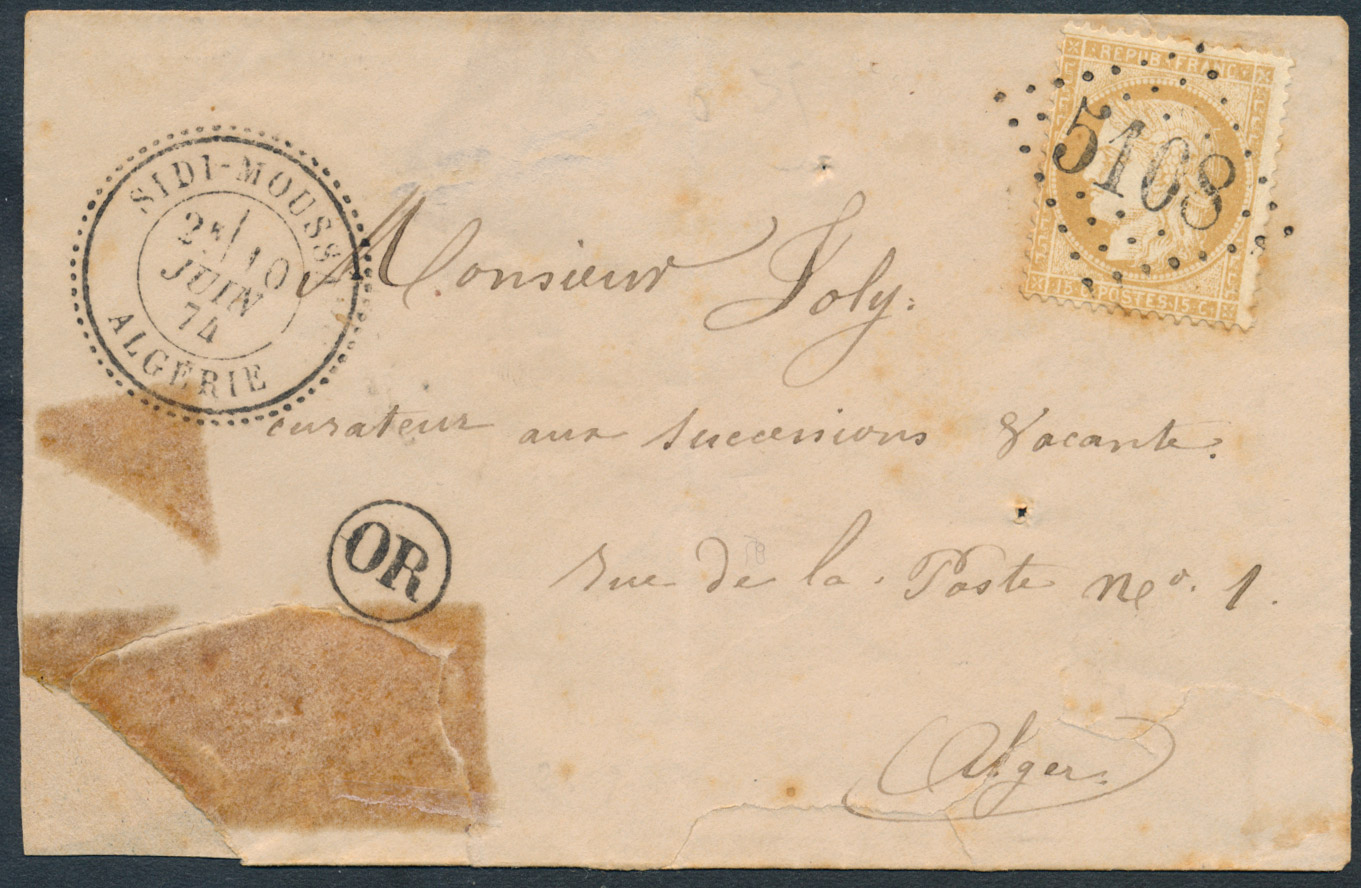 REPUB·FRANC·
5108
15 C. POSTES 15 C.
SIDI-MOUSSA
2E/ 10
JUIN
74
ALGÉRIE
Monsieur Joly.
curateur aux successions Vacante.
OR
rue de la Poste No. 1.
Alger